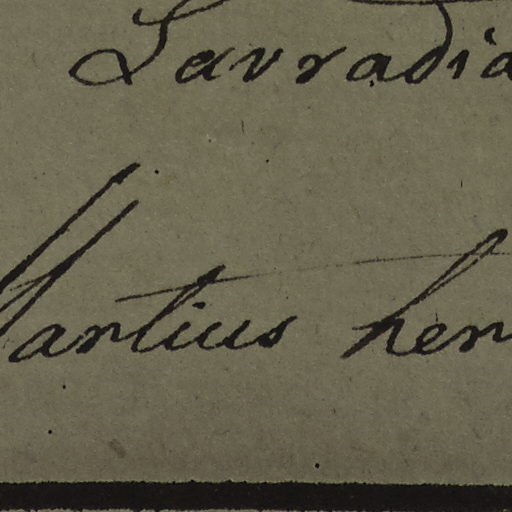 Lavradia
Martius her